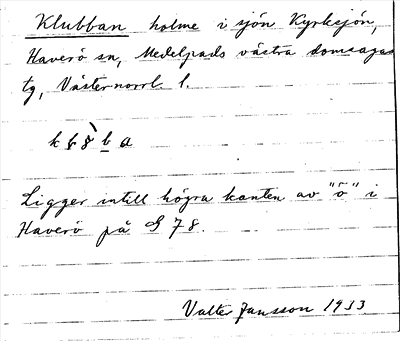 Klubban holme i sjön Kyrksjön,
Haverö sn, Medelpads västra domsagas
tg, Västernorrl. l.
Ligger intill högra kanten av "ö" i
Haverö på G 78.
Valter Jansson 1933